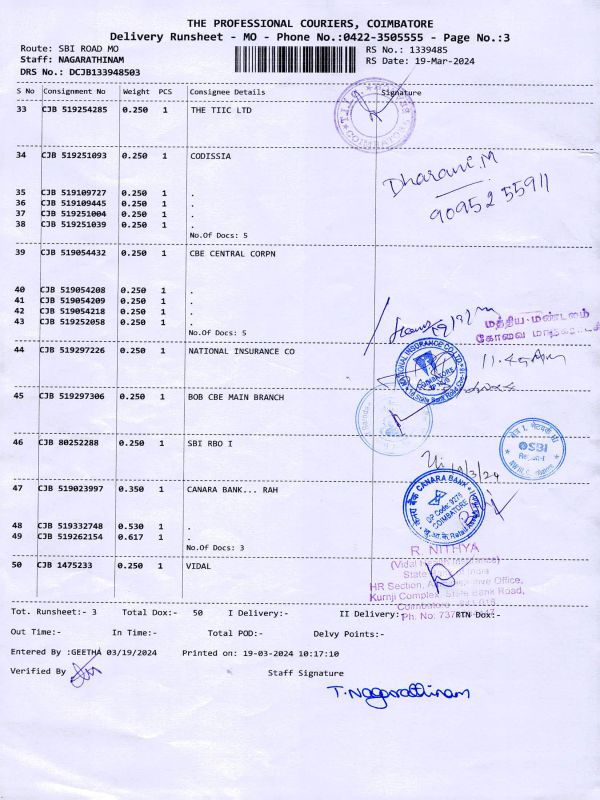 THE PROFESSIONAL COURIERS, COIMBATORE
Delivery Runsheet - MO - Phone No.:0422-3505555 - Page No.:3
Route: SBI ROAD MO RS No.: 1339485
Staff: NAGARATHINAM RS Date: 19-Mar-2024
DRS No.: DCJB133948503
S No Consignment No Weight PCS Consignee Details Signature
33 CJB 519254285 0.250 1 THE TIIC LTD
34 CJB 519251093 0.250 1 CODISSIA
Dharani.M
90952 55911
35 CJB 519109727 0.250 1 .
36 CJB 519109445 0.250 1 .
37 CJB 519251004 0.250 1 .
38 CJB 519251039 0.250 1 .
No.Of Docs: 5
39 CJB 519054432 0.250 1 CBE CENTRAL CORPN
40 CJB 519054208 0.250 1 .
41 CJB 519054209 0.250 1 .
42 CJB 519054218 0.250 1 .
43 CJB 519252058 0.250 1 .
No.Of Docs: 5
மத்திய மண்டலம்
கோவை மாநகராட்சி
44 CJB 519297226 0.250 1 NATIONAL INSURANCE CO
NATIONAL INSURANCE CO LTD
COIMBATORE
45 CJB 519297306 0.250 1 BOB CBE MAIN BRANCH
46 CJB 80252288 0.250 1 SBI RBO I
SBI
Region-I
47 CJB 519023997 0.350 1 CANARA BANK... RAH
CANARA BANK
DP Code: 9274
COIMBATORE
48 CJB 519332748 0.530 1 .
49 CJB 519262154 0.617 1 .
No.Of Docs: 3
50 CJB 1475233 0.250 1 VIDAL
R. NITHYA
State Bank of India
HR Section, Office,
Kurnji Complex, State Bank Road,
Coimbatore
Ph. No:
Tot. Runsheet:- 3 Total Dox:- 50 I Delivery:- II Delivery:- RTN Dox:-
Out Time:- In Time:- Total POD:- Delvy Points:-
Entered By :GEETHA 03/19/2024 Printed on: 19-03-2024 10:17:10
Verified By Staff Signature
T.Nagarathinam